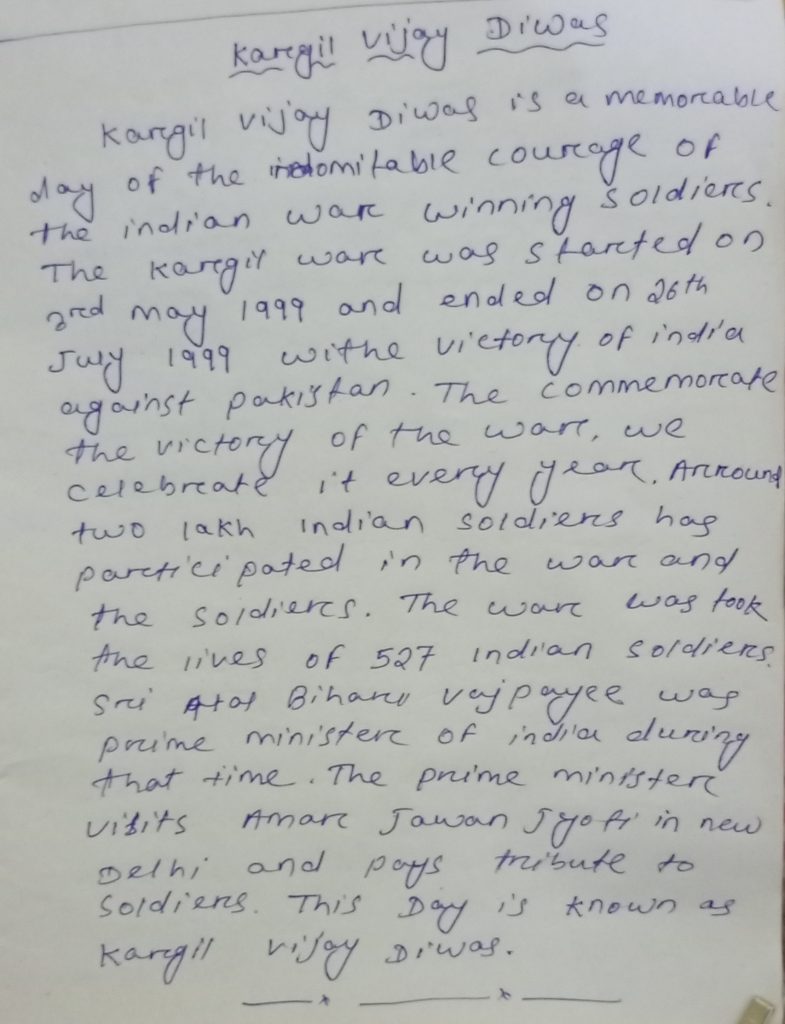 Kargil Vijay Diwas
Kargil Vijay Diwas is a memorable
day of the indomitable courage of
the indian war winning soldiers.
The Kargil war was started on
3rd may 1999 and ended on 26th
July 1999 withe victory of india
against pakistan. The commemorate
the victory of the war, we
celebrate it every year. Arround
two lakh indian soldiers has
participated in the war and
the soldiers. The war was took
the lives of 527 indian soldiers.
Sri Atal Bihari Vajpayee was
prime minister of india during
that time. The prime minister
visits Amar Jawan Jyoti in new
Delhi and pays tribute to
soldiers. This Day is known as
Kargil Vijay Diwas.